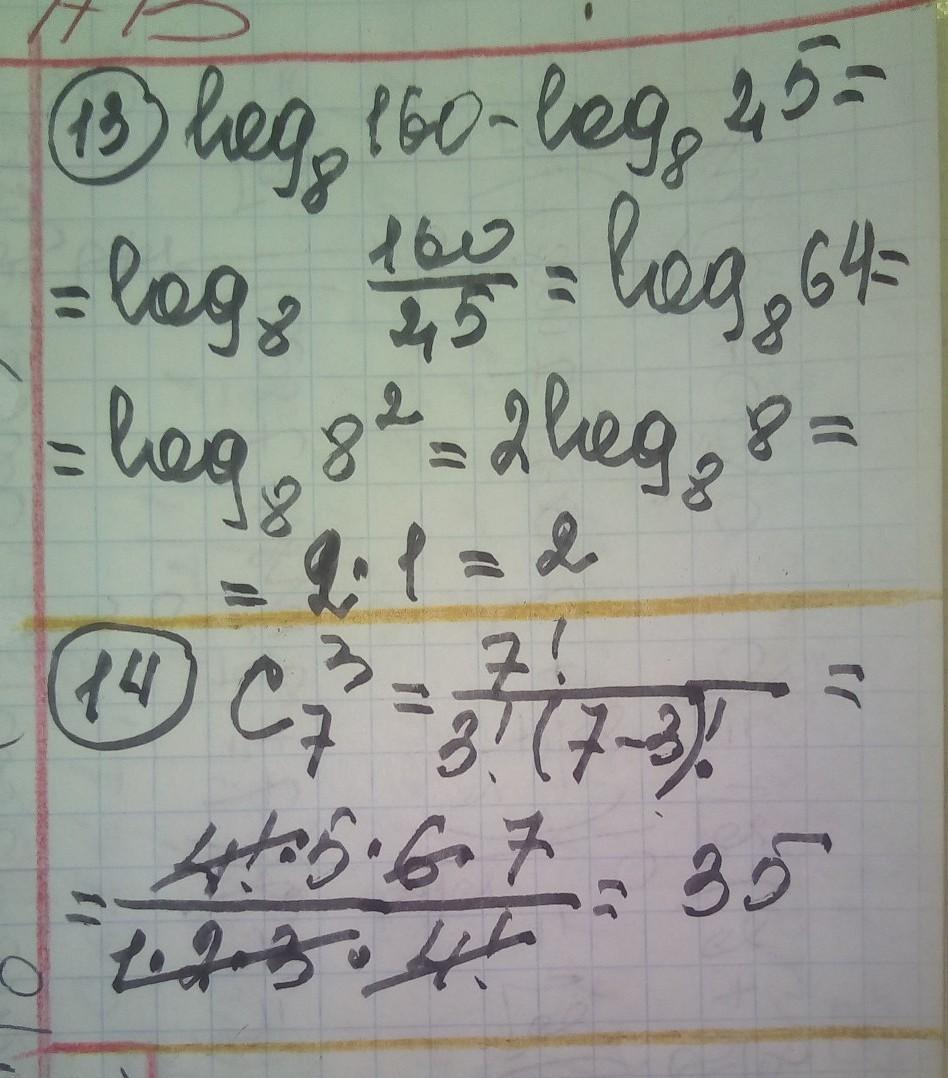 13 log₈ 160 - log₈ 2,5 =
= log₈ 160/2,5 = log₈ 64 =
= log₈ 8² = 2 log₈ 8 =
= 2 · 1 = 2
14 C₇³ = 7!/3!(7-3)! =
= 4!·5·6·7/1·2·3·4! = 35